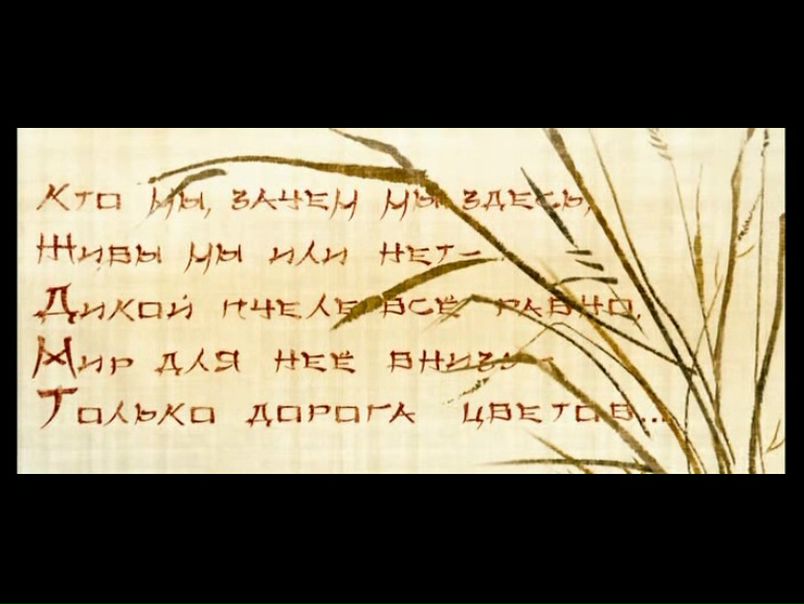 Кто мы, зачем мы здесь,
Живы мы или нет–
Дикой пчеле всё равно.
Мир для неё внизу –
Только дорога цветов...